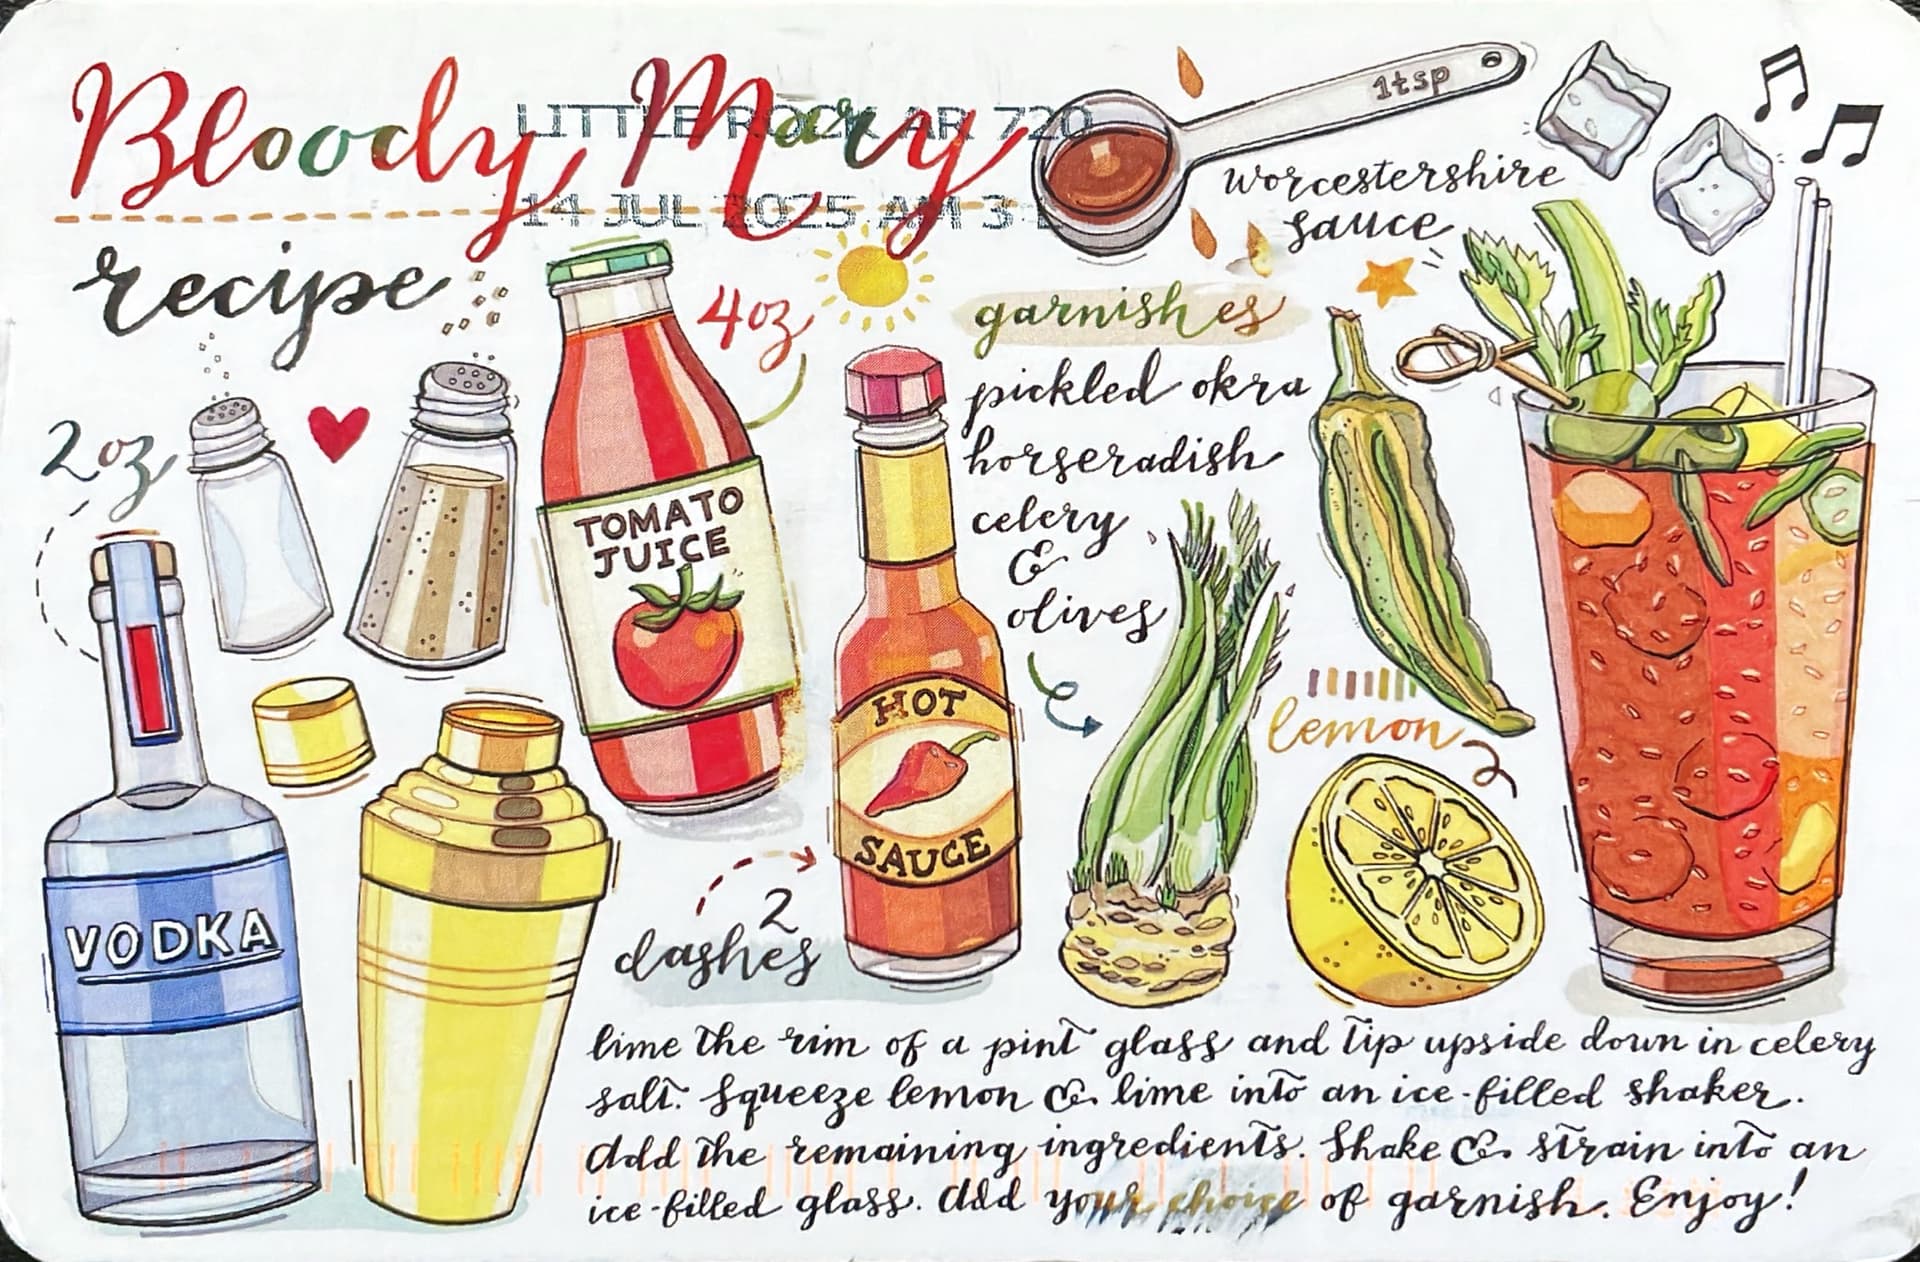 Bloody Mary
LITTLE ROCK AR 720
14 JUL 2025 AM 3
recipe
1tsp
worcestershire
sauce
2oz
4oz
TOMATO
JUICE
garnishes
pickled okra
horseradish
celery
&
olives
HOT
SAUCE
lemon
VODKA
2
dashes
lime the rim of a pint glass and tip upside down in celery
salt. Squeeze lemon & lime into an ice-filled shaker.
Add the remaining ingredients. Shake & strain into an
ice-filled glass. Add your choice of garnish. Enjoy!